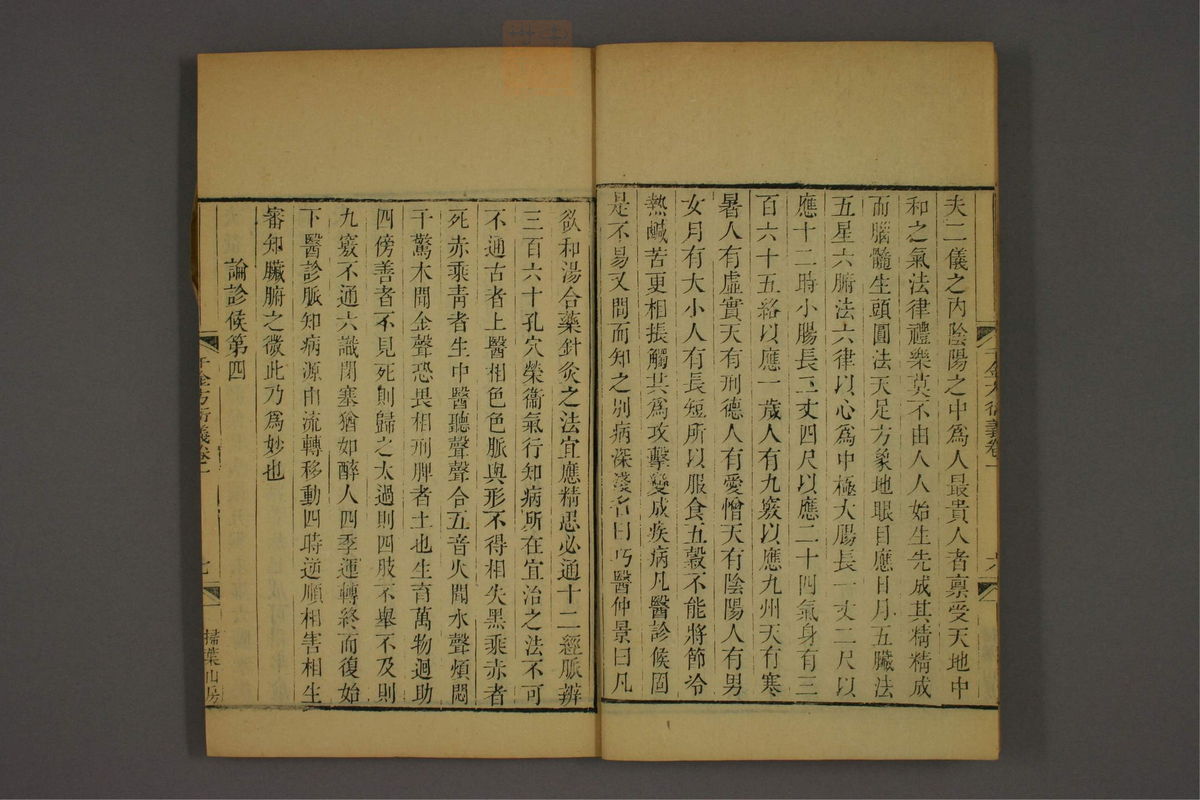 夫二儀之内陰陽之中爲人最貴人者禀受天地中
和之氣法律禮樂莫不由人人始生先成其精精成
而腦髓生頭圓法天足方象地眼目應日月五臟法
五星六腑法六律以心爲中極大腸長一丈二尺以
應十二時小腸長二丈四尺以應二十四氣身有三
百六十五絡以應一歲人有九竅以應九州天有寒
暑人有虛實天有刑德人有愛憎天有陰陽人有男
女月有大小人有長短所以服食五穀不能將節冷
熱鹹苦更相振觸共爲攻擊變成疾病凡醫診候固
是不易又問而知之别病深淺名曰巧醫仲景曰凡
欲和湯合藥針灸之法宜應精思必通十二經脈辨
三百六十孔穴榮衞氣行知病所在宜治之法不可
不通古者上醫相色色脈與形不得相失黑乘赤者
死赤乘青者生中醫聽聲聲合五音火聞水聲煩悶
干驚木聞金聲恐畏相刑脾者土也生育萬物迴助
四傍善者不見死則歸之太過則四肢不舉不及則
九竅不通六識閉塞猶如醉人四季運轉終而復始
下醫診脈知病源由流轉移動四時逆順相害相生
審知臟腑之微此乃爲妙也
論診候第四
千金方衍義卷一
七
掃葉山房